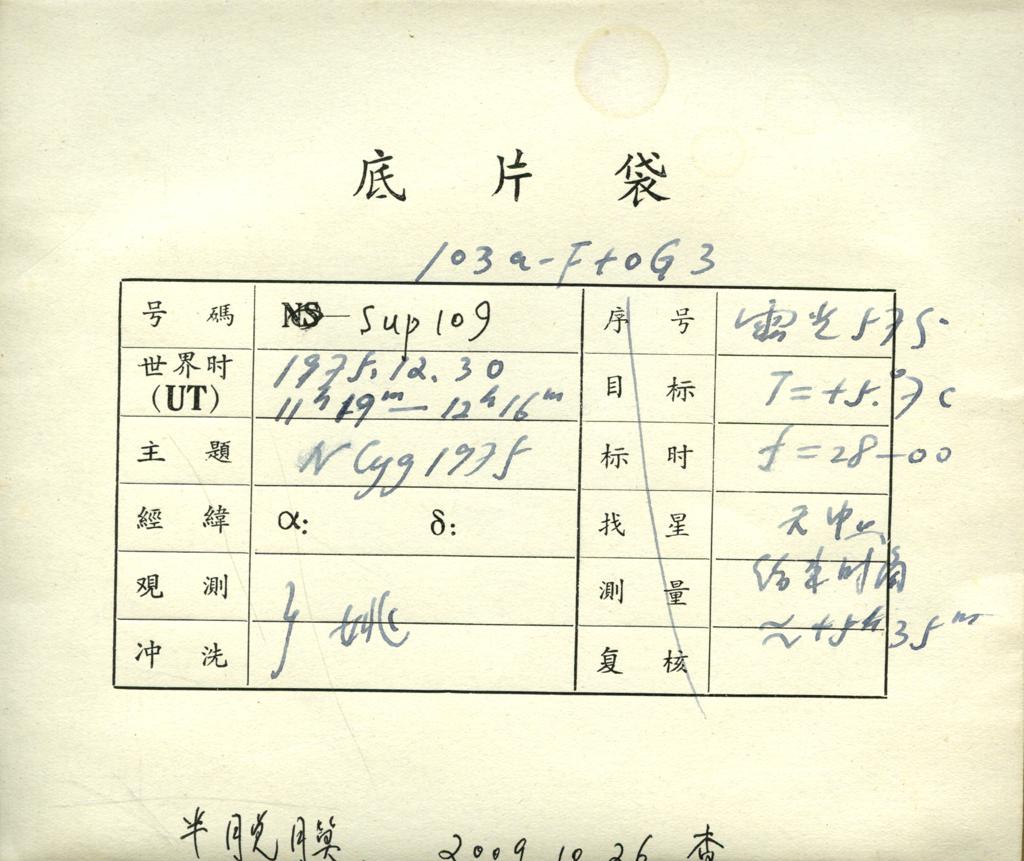 底片袋
103a-F+OG3
号碼 NS Sup 109 序号 575
世界时 (UT) 1975.12.30 目标 T=+5.°7C
11ʰ19ᵐ—12ʰ16ᵐ
主題 N Cyg 1975 标时 f=28-00
經緯 α: δ: 找星
观測 姚 測量 结束时角
冲洗 复核 ≈+5ʰ35ᵐ
半脱膜 2009.10.26 查